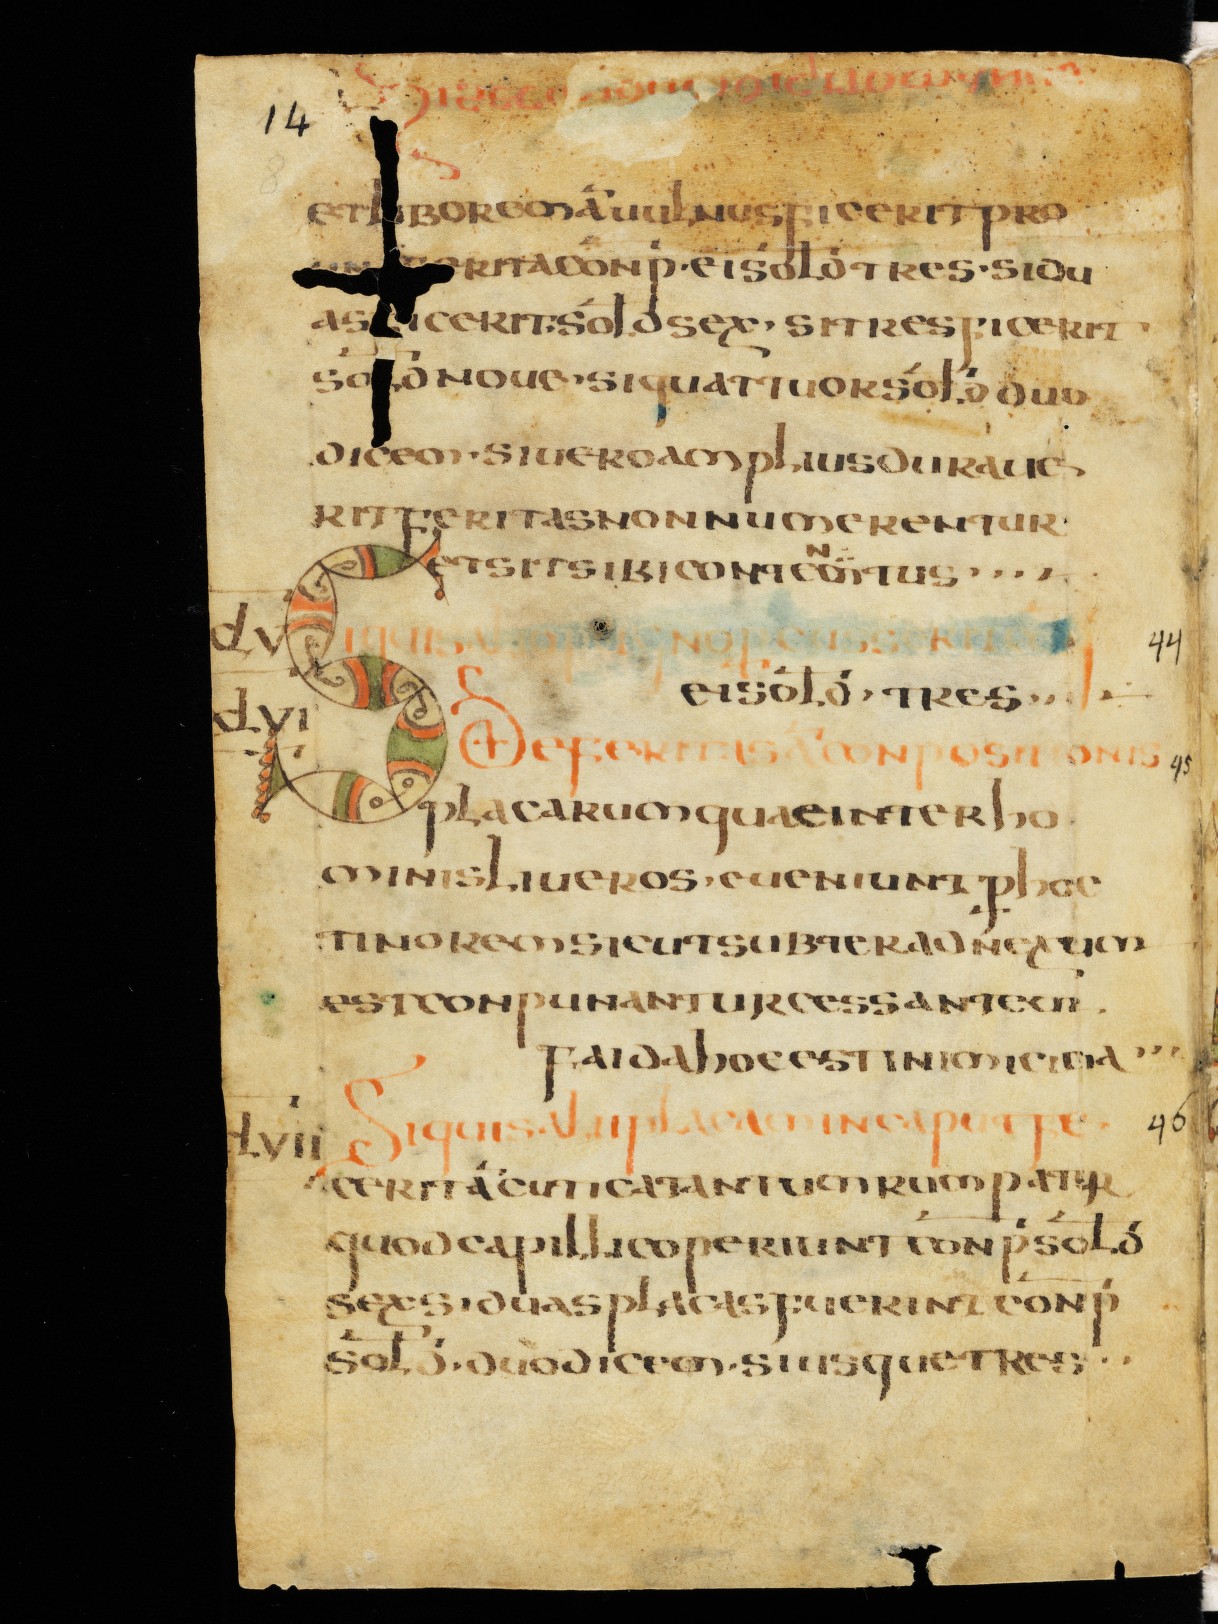 14
8
et liborem aut uulnus ficerit pro
ferita conp· ei solđ tres · si du
as ficerit, solđ sex, si tres ficerit
solđ noue · si quattuor solđ duo
dicem · si uero amplius duraue
rit feritas non numerentur
et sit sibi contemtus
n
dlv
iquis ali pugno percusserit 44
ei solđ, tres
dlvi
De feritis aut conpositionis 45
placarum quae inter ho
minis liueros, eueniunt p hoc
tinorem sicut subter adnexum
est conpunantur cessantem
faida hoc est inimicicia
dlvii
Si quis alii placam in caput fe 46
cerit aut cuticatantum rumpatur
quod capilli coperiunt conp solđ
sex si duas placas fuerint conp
solđ, duodicem, si usque tres